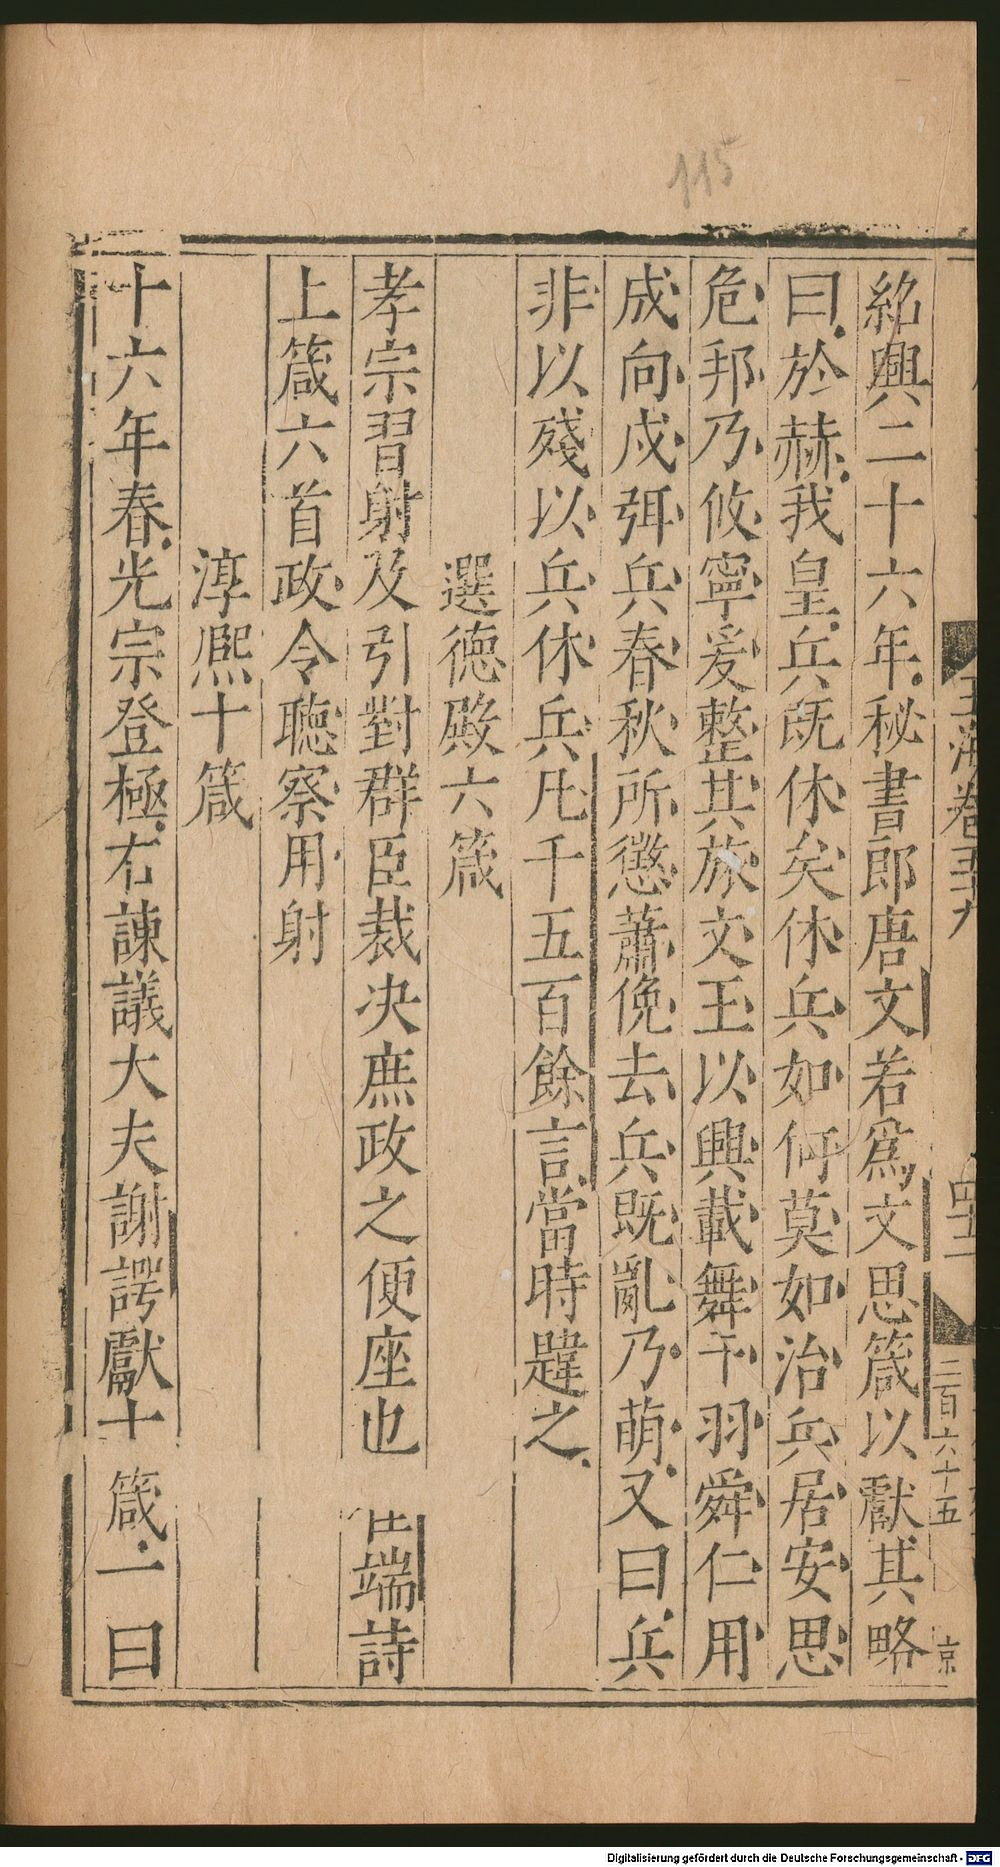 115
玉海卷五十九
四十二
二百六十五
京
紹興二十六年秘書郎唐文若爲文思箴以獻其略
曰於赫我皇兵旣休矣休兵如何莫如治兵居安思
危邦乃攸寧爰整其旅文王以興載舞干羽舜仁用
成向戍弭兵春秋所懲蕭俛去兵旣亂乃萌又曰兵
非以殘以兵休兵凡千五百餘言當時韙之
選德殿六箴
孝宗習射及引對群臣裁决庶政之便座也 端詩
上箴六首政令聽察用射
淳熈十箴
十六年春光宗登極右諫議大夫謝諤獻十箴一曰
Digitalisierung gefördert durch die Deutsche Forschungsgemeinschaft - DFG